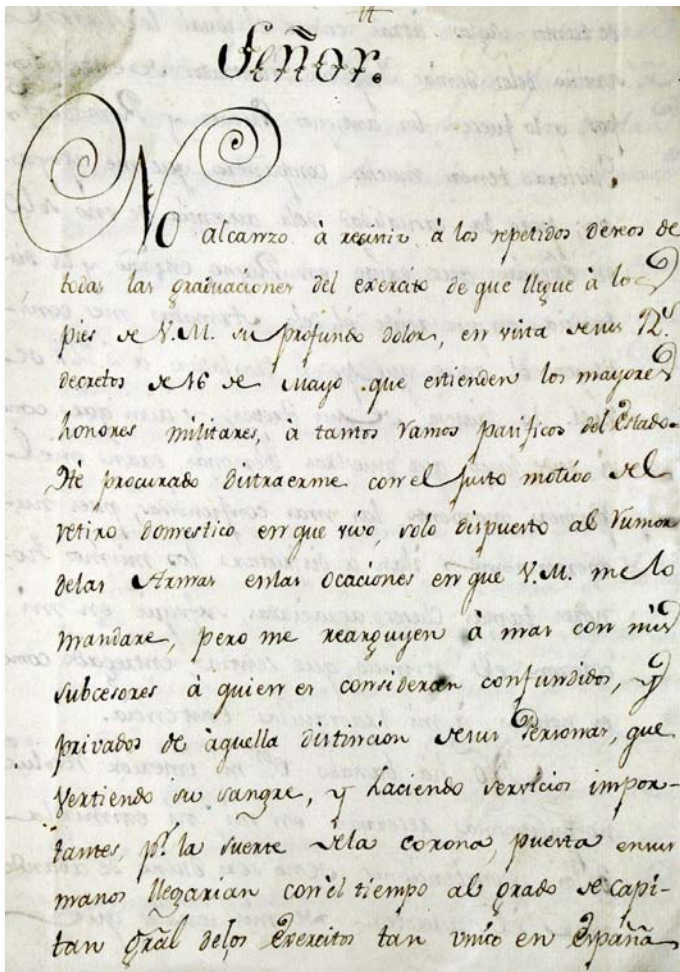 Señor.
No alcanzo à resistir à los repetidos deseos de
todas las graduaciones del exercito de que llegue à los
pies de V.M. su profundo dolor, en vista de sus Rs.
decretos de 16 de Mayo que estienden los mayores
honores militares, à tantos Ramos pasificos del Estado.
Hé procurado distraerme con el justo motivo del
retiro domestico en que vivo, solo dispuesto al Rumor
de las Armas en las ocaciones en que V.M. me lo
mandare, pero me rearguyen à mas con mis
subcesores à quienes consideran confundidos, y
privados de àquella distincion de sus Personas, que
vertiendo su sangre, y haciendo servicios impor-
tantes, pr. la suerte de la corona, puesta en sus
manos llegarian con el tiempo al grado de capi-
tan gral de los Exercitos tan unico en España